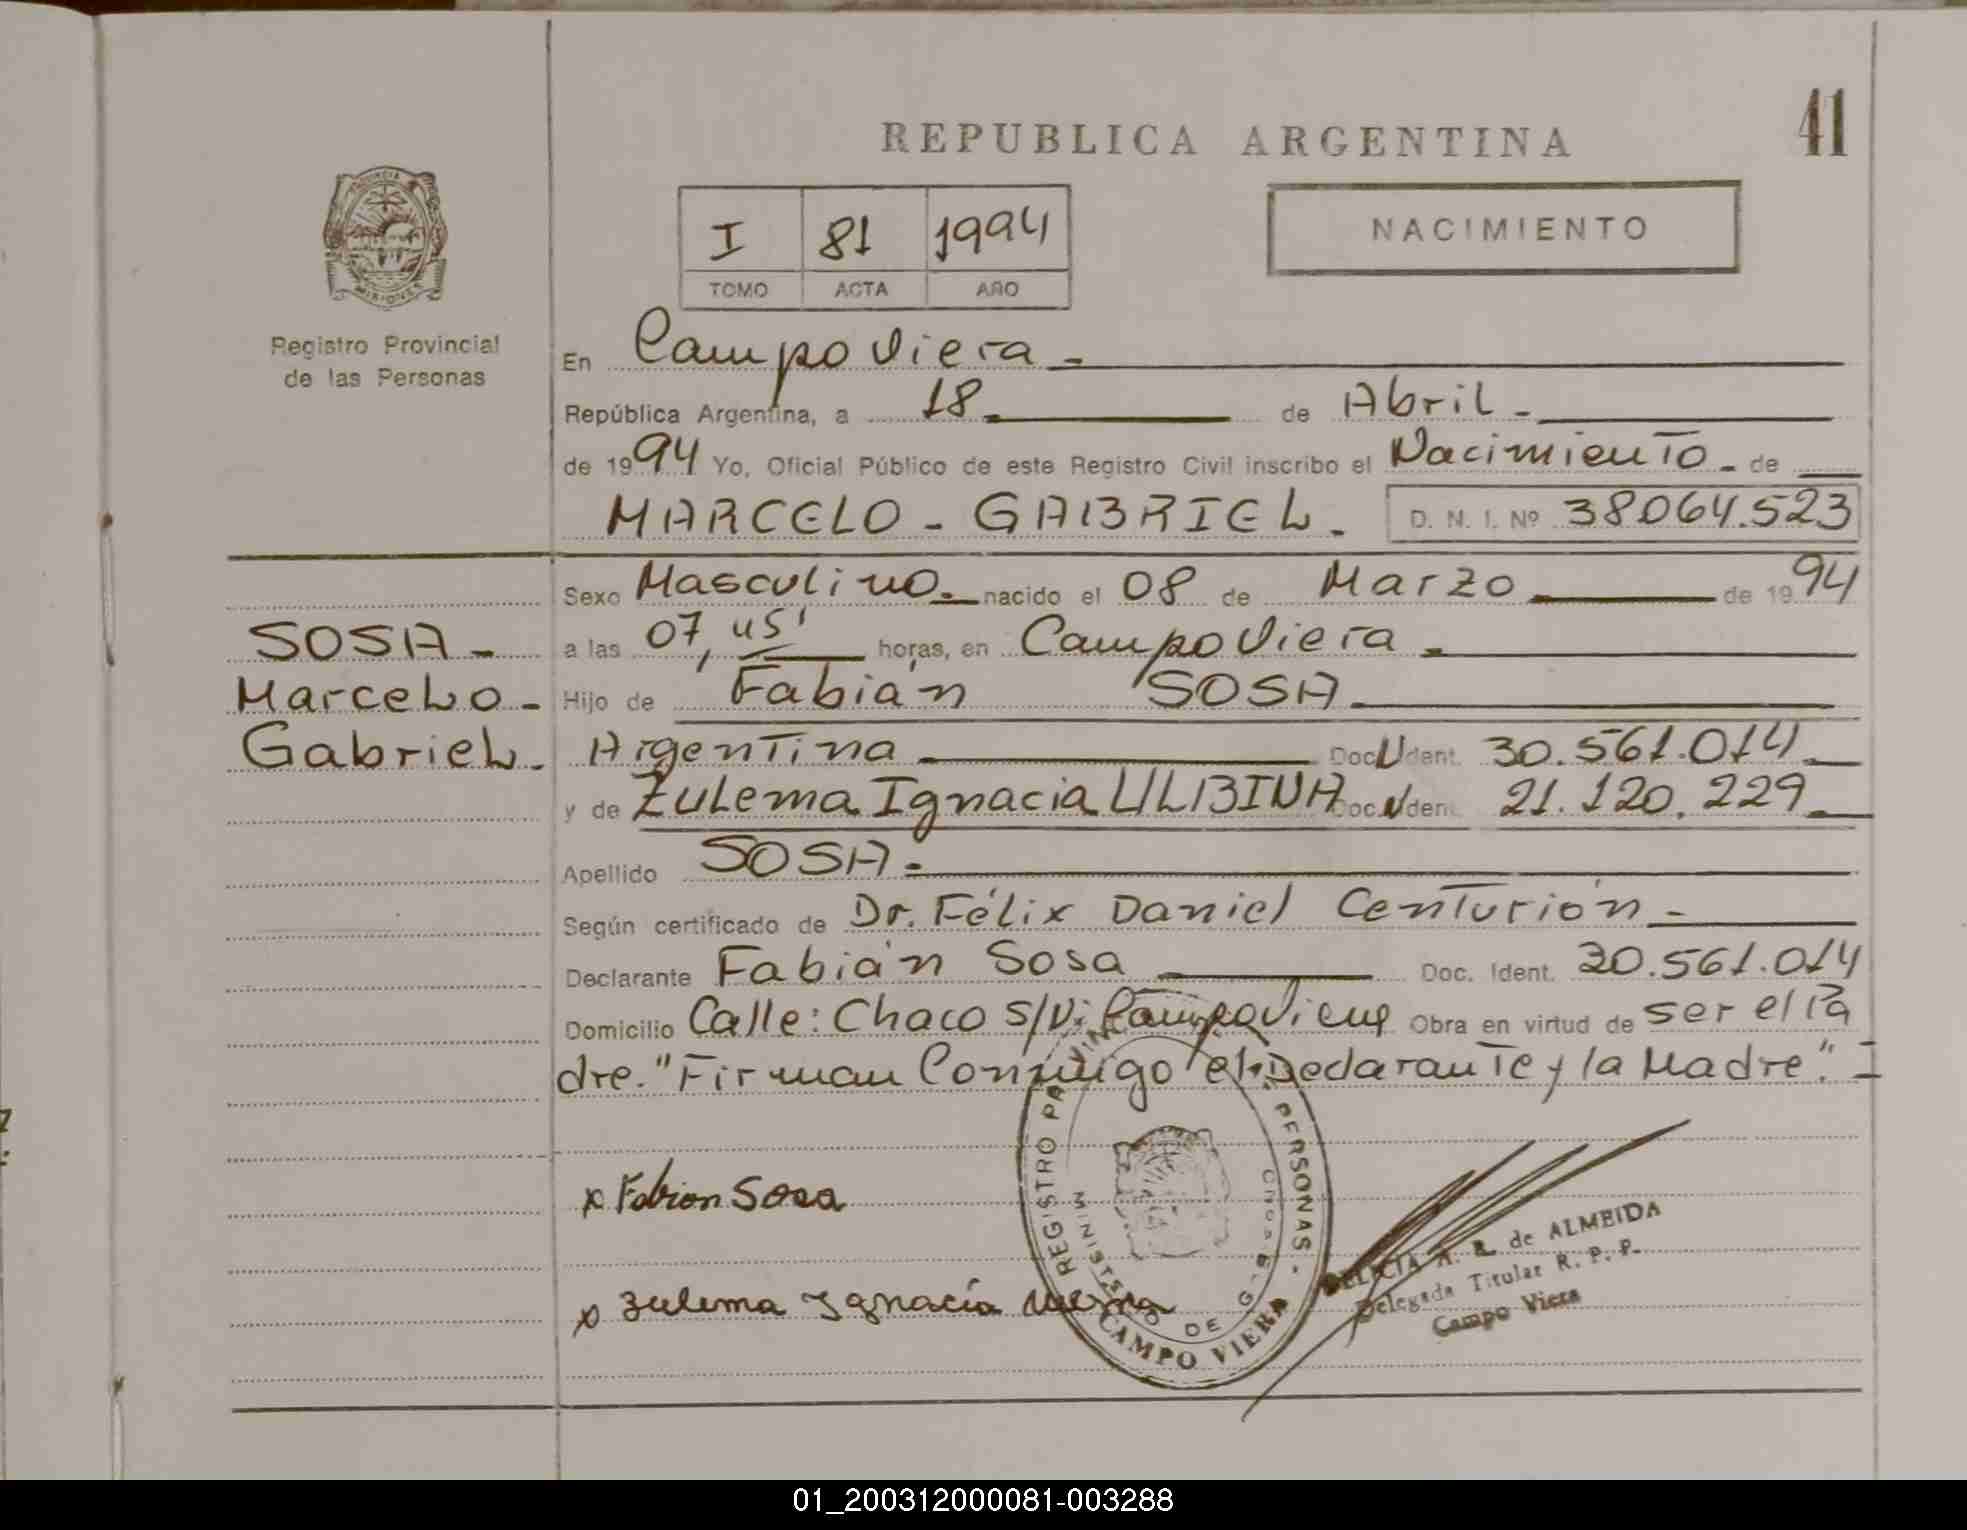 41
REPUBLICA ARGENTINA
NACIMIENTO
I 81 1994
TOMO ACTA AÑO
PROVINCIA
MISIONES
Registro Provincial
de las Personas
En Campo Viera -
República Argentina, a 18 - de Abril -
de 1994 Yo, Oficial Público de este Registro Civil inscribo el Nacimiento - de
MARCELO - GABRIEL - D. N. I. Nº 38064.523
SOSA -
Marcelo -
Gabriel -
Sexo Masculino. nacido el 08 de Marzo de 1994
a las 07, 45' horas, en Campo Viera -
Hijo de Fabián SOSA
Argentina Doc. Ident. 30.561.014
y de Zulema Ignacia Doc. Ident. 21.120.229
Apellido SOSA -
Según certificado de Dr. Félix Daniel Centurión -
Declarante Fabián Sosa Doc. Ident. 30.561.014
Domicilio Calle: Chaco Obra en virtud de ser el Pa
dre. "Firman Conmigo el Declarante y la Madre".
x Fabian Sosa
x Zulema Ygnacia
REGISTRO PERSONAS
MINISTERIO DE
CAMPO VIERA
A. R. de ALMEIDA
Delegada Titular R. P. P.
Campo Viera
01_200312000081-003288